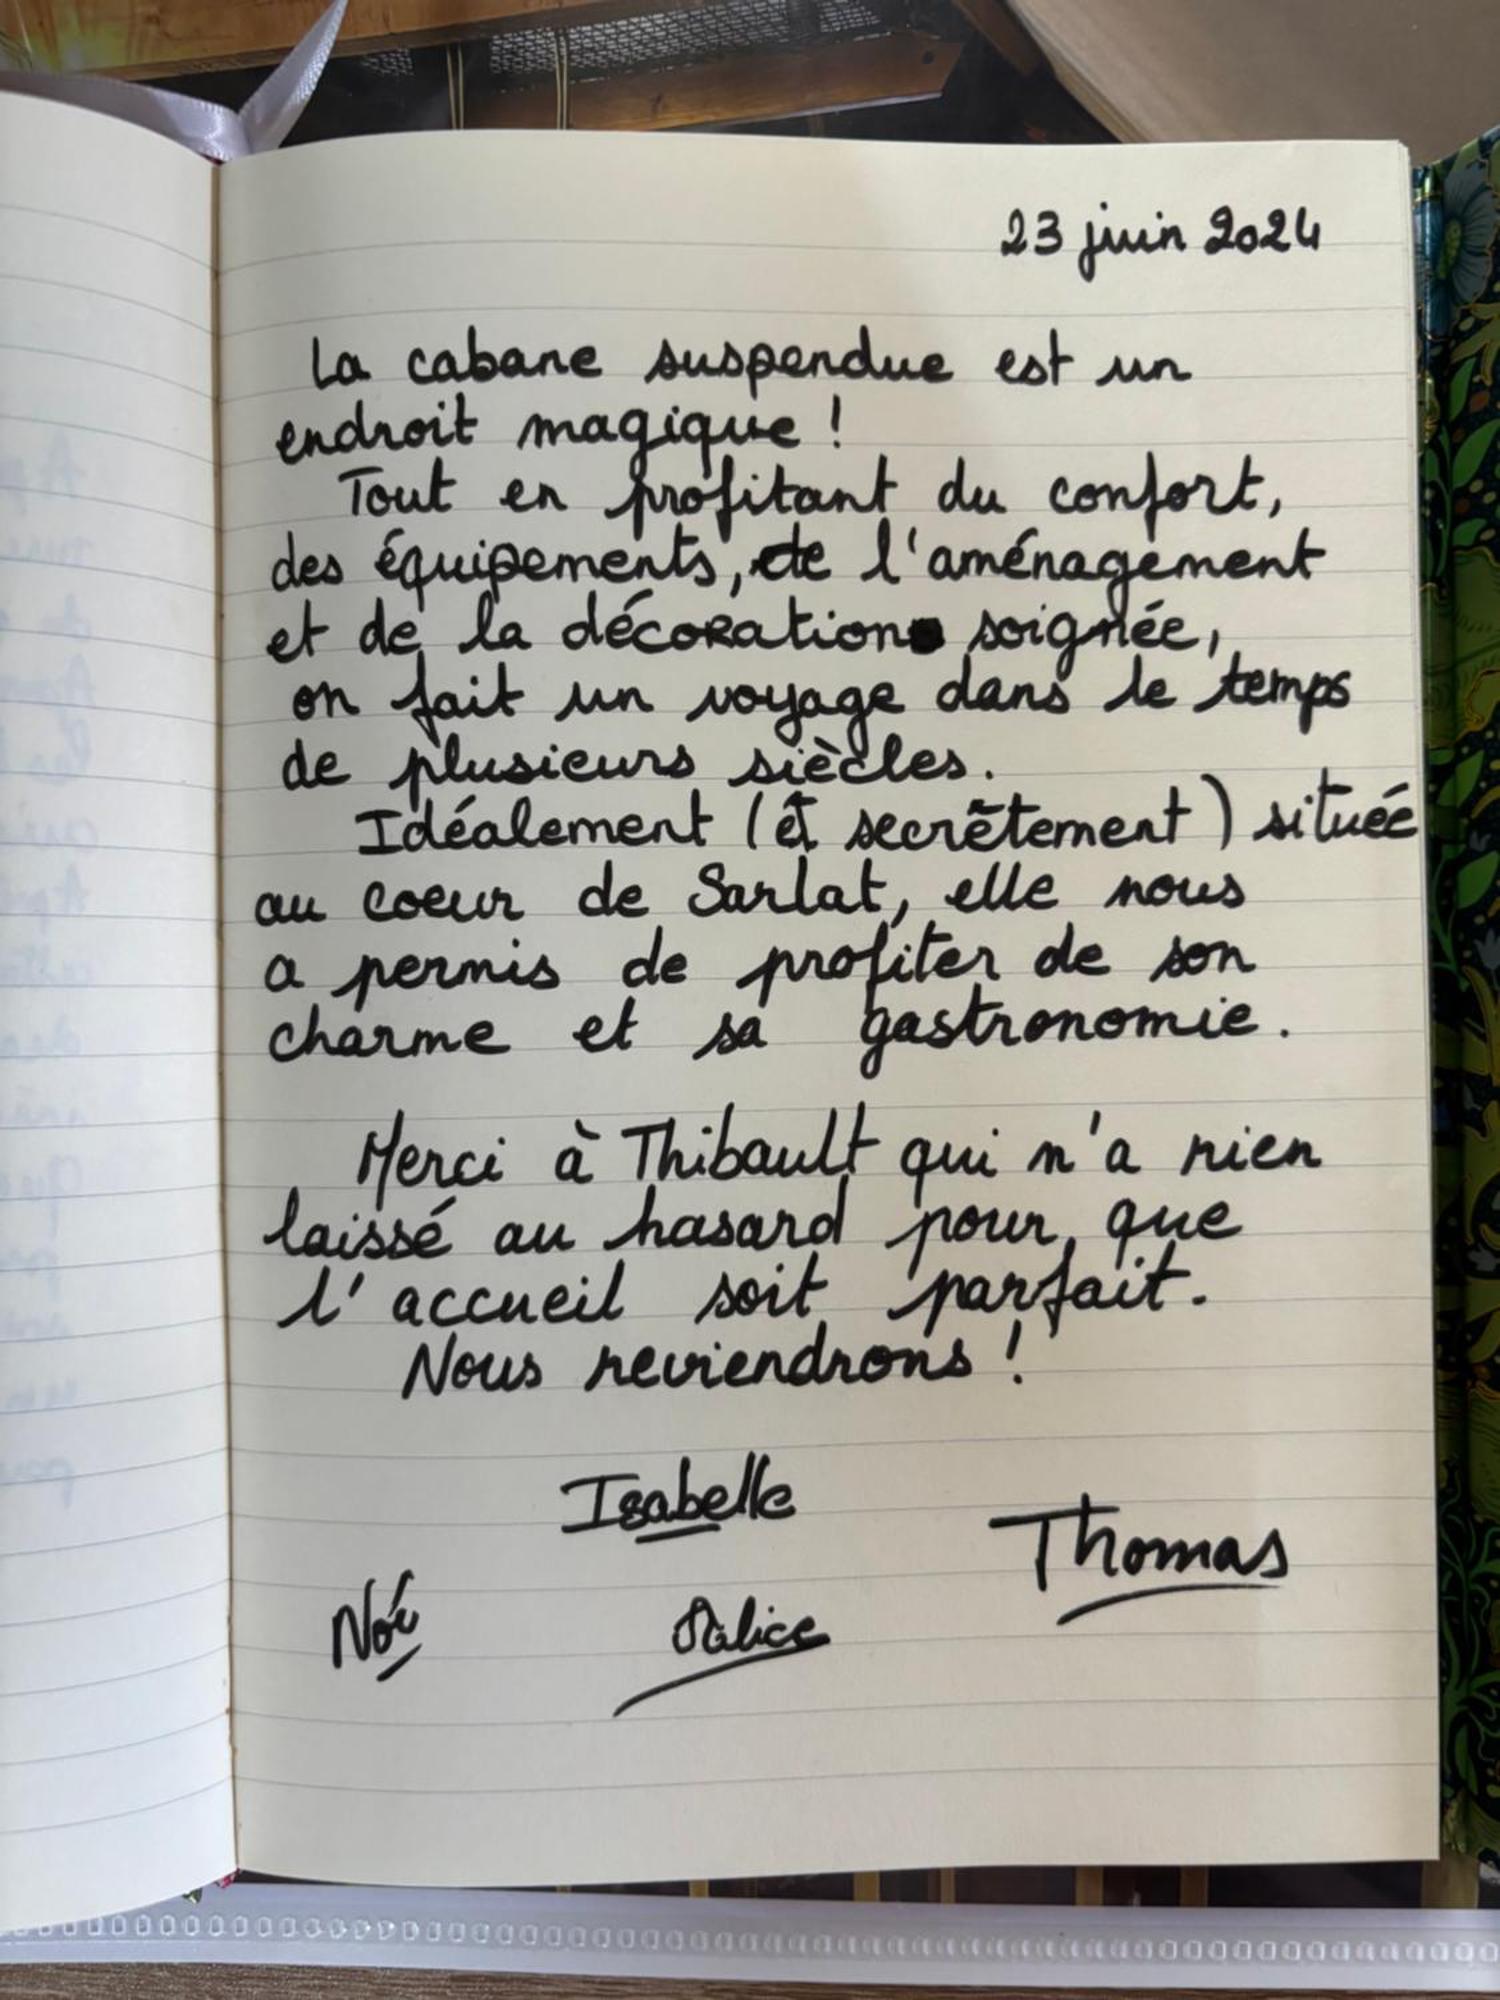 23 juin 2024
La cabane suspendue est un
endroit magique !
Tout en profitant du confort,
des équipements, de l'aménagement
et de la décoration soignée,
on fait un voyage dans le temps
de plusieurs siècles.
Idéalement (et secrètement) située
au coeur de Sarlat, elle nous
a permis de profiter de son
charme et sa gastronomie.
Merci à Thibault qui n'a rien
laissé au hasard pour que
l'accueil soit parfait.
Nous reviendrons !
Isabelle
Thomas
Noé